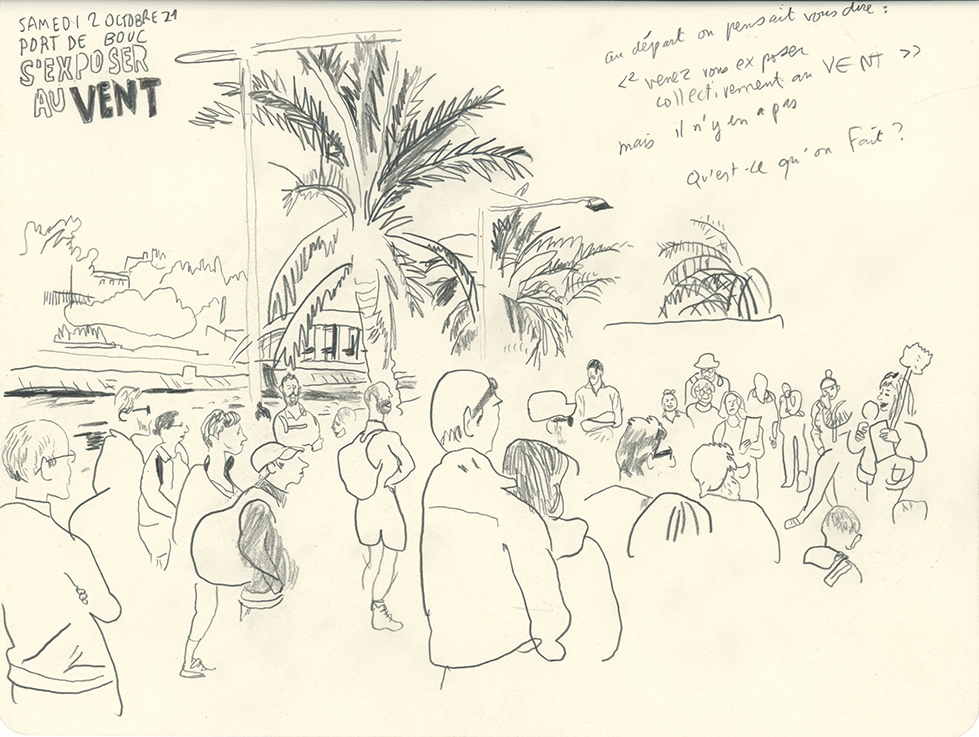 SAMEDI 2 OCTOBRE 21
PORT DE BOUC
S'EXPOSER
AU VENT
au départ on pensait vous dire :
<< venez vous exposer
collectivement au VENT >>
mais il n'y en a pas
Qu'est-ce qu'on Fait ?